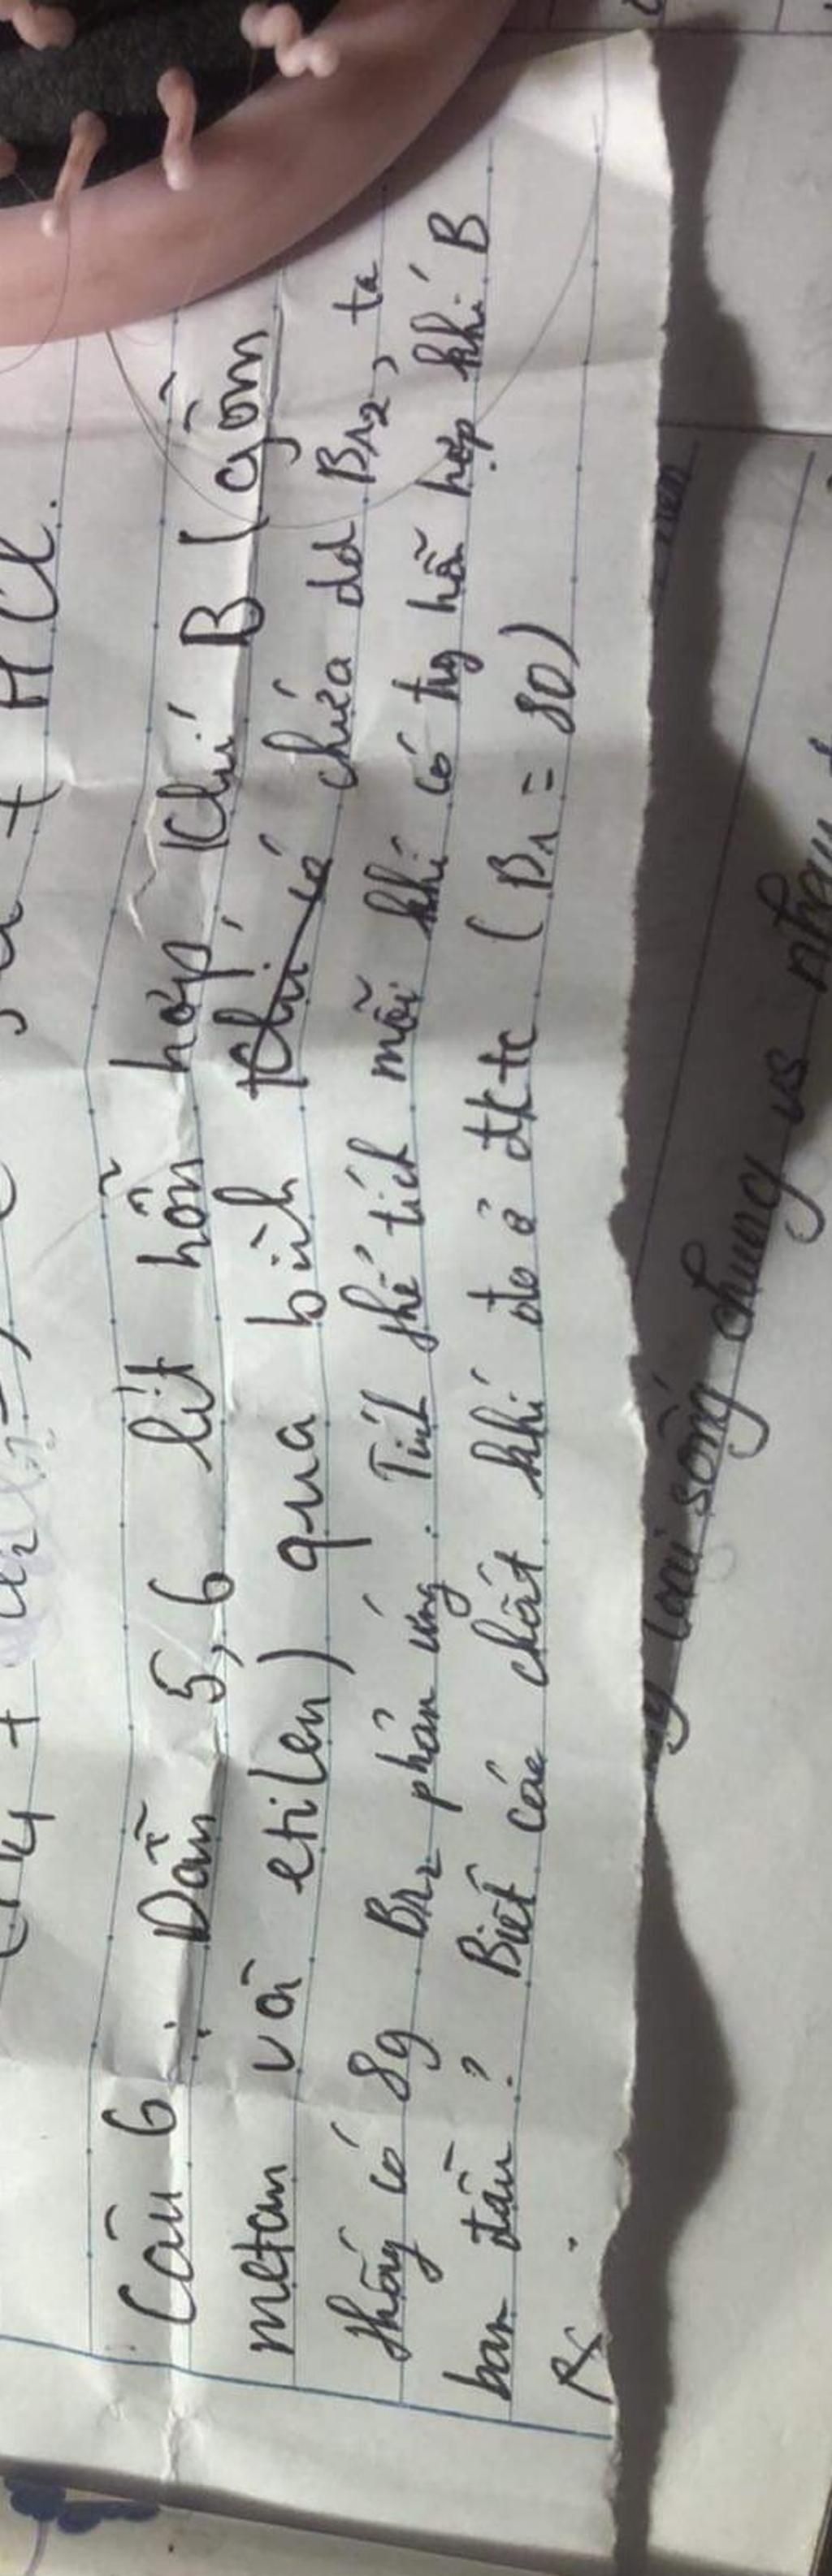 + HCl.
Câu 6: Dẫn 5,6 lít hỗn hợp khí B (gồm
metan và etilen) qua bình chứa dd Br2, ta
thấy có 8g Br2 phản ứng. Tính thể tích mỗi khí có trg hỗn hợp khí B
ban đầu? Biết các chất khí đo ở đktc (Br = 80)
loài sống chung vs nhau